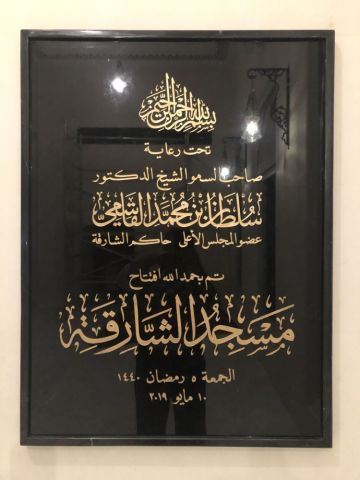 بسم الله الرحمن الرحيم
تحت رعاية
صاحب السمو الشيخ الدكتور
سلطان بن محمد القاسمي
عضو المجلس الأعلى حاكم الشارقة
تم بحمد الله افتتاح
مَسْجِدُ الشَّارِقَةِ
الجمعة ٥ رمضان ١٤٤٠
١٠ مايو ٢٠١٩